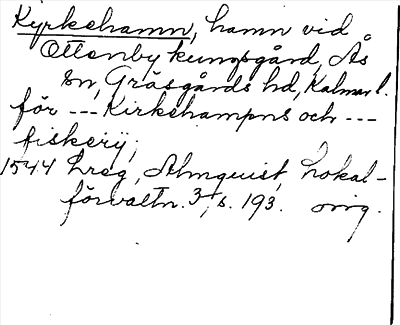 Kyrkehamn, hamn vid
Ottenby kungsgård, Ås
sn, Gräsgårds hd, Kalmar l.
för --- Kirkehampns och ---
fiskerij;
1544 Lreg, Almquist, Lokal-
förvaltn. 3, s. 193. orig.